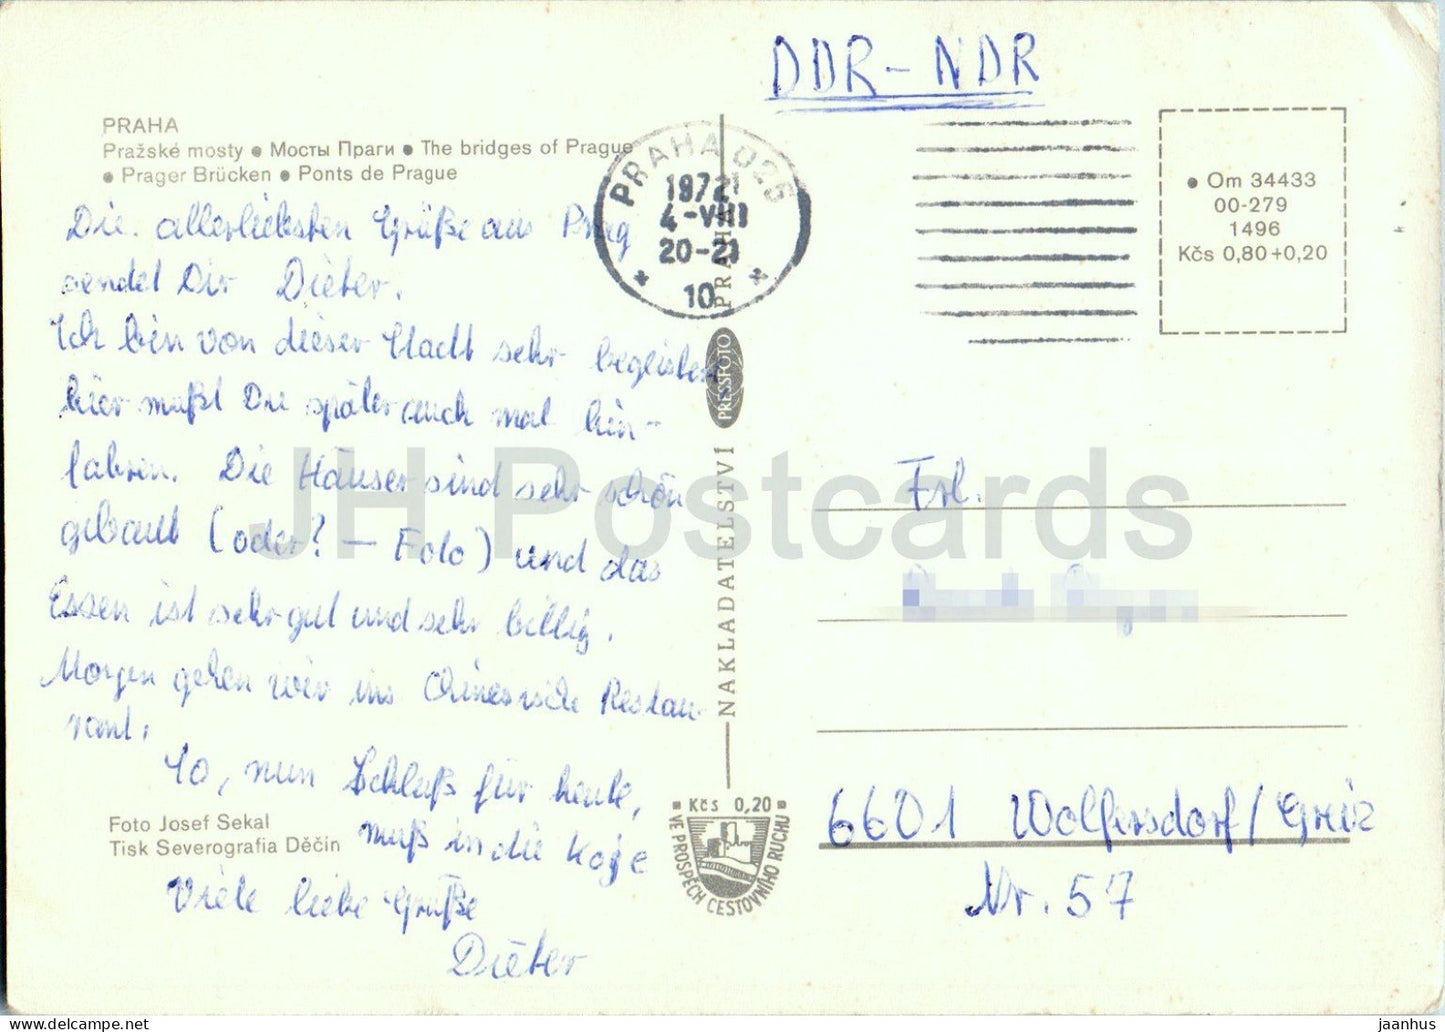 DDR-NDR
PRAHA
Pražské mosty • Мосты Праги • The bridges of Prague
• Prager Brücken • Ponts de Prague
PRAHA 025
1972
4-VIII
20-21
10
• Om 34433
00-279
1496
Kčs 0,80+0,20
Die allerliebsten Grüße aus Prag
sendet Dir Dieter.
Ich bin von dieser Stadt sehr
hier mußt Du später auch mal hin-
fahren. Die Häuser sind sehr schön
gebaut (oder? — Foto) und das
Essen ist sehr gut und sehr billig.
Morgen gehen wir ins Chinesische Restau-
rant.
So, nun Schluß für heute,
muß in die Koje
Viele liebe Grüße
Dieter
Foto Josef Sekal
Tisk Severografia Děčín
NAKLADATELSTVÍ
PRESSFOTO
PRAHA
Kčs 0,20
VE PROSPĚCH CESTOVNÍHO RUCHU
Frl.
6601 Wolfersdorf/Greiz
Nr. 57
JH Postcards
jaanhus
delcampe.net